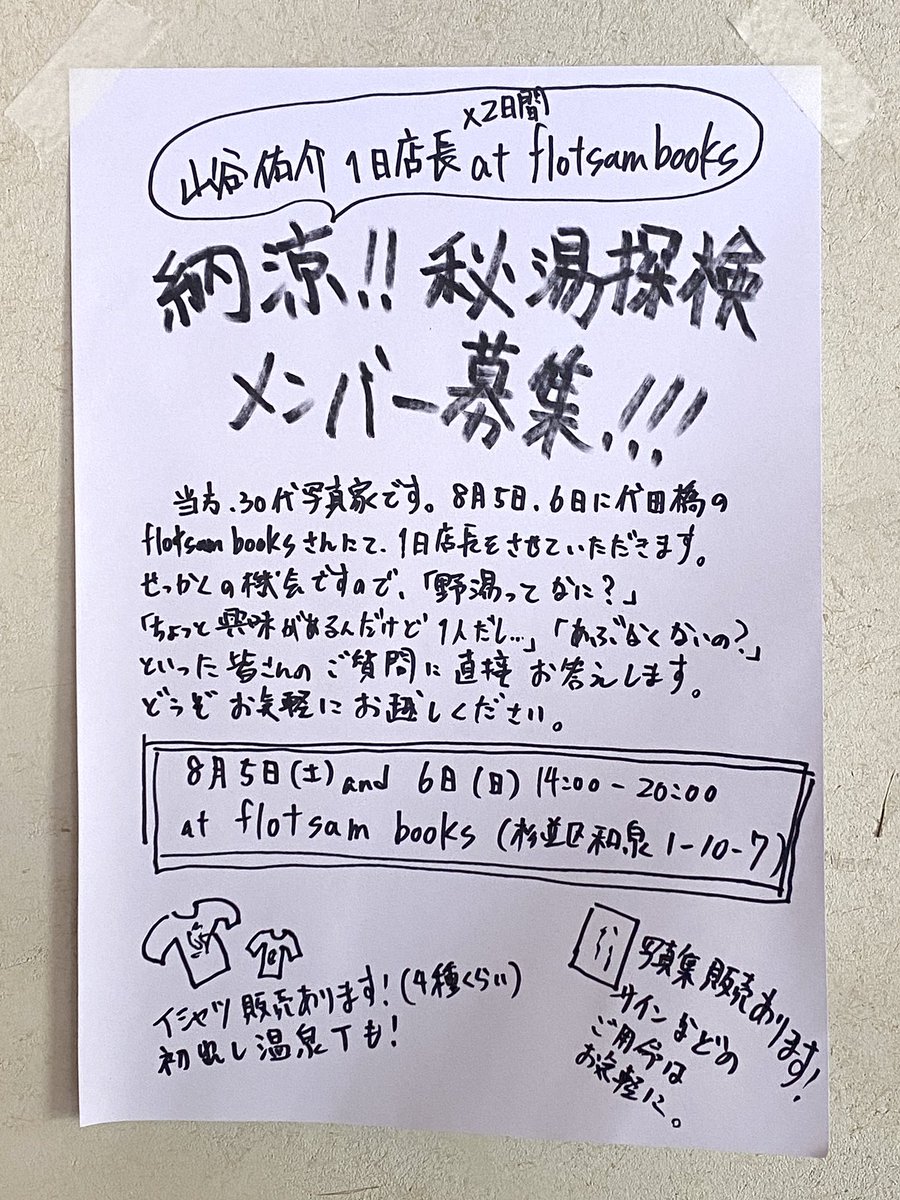 山谷佑介 1日店長 ×2日間 at flotsam books
納涼!! 秘湯探検
メンバー募集!!!
当方、30代写真家です。8月5日、6日に代田橋の
flotsam booksさんにて、1日店長をさせていただきます。
せっかくの機会ですので、「野湯ってなに?」
「ちょっと興味があるんだけど1人だし…」「あぶなくないの?」
といった皆さんのご質問に直接お答えします。
どうぞお気軽にお越しください。
8月5日(土) and 6日(日) 14:00-20:00
at flotsam books (杉並区和泉1-10-7)
Tシャツ販売あります!(4種くらい)
初出し温泉Tも!
写真集販売あります!
サインなどの
ご用命は
お気軽に。